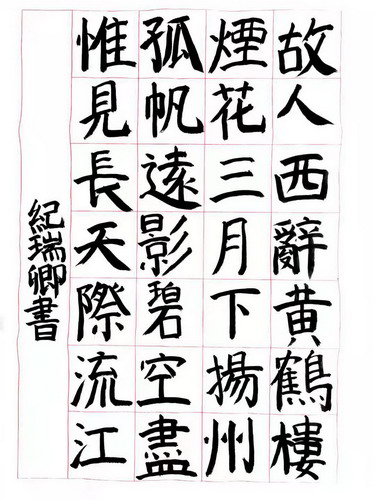 故人西辭黄鶴樓
煙花三月下揚州
孤帆遠影碧空盡
惟見長天際流江
紀瑞卿書